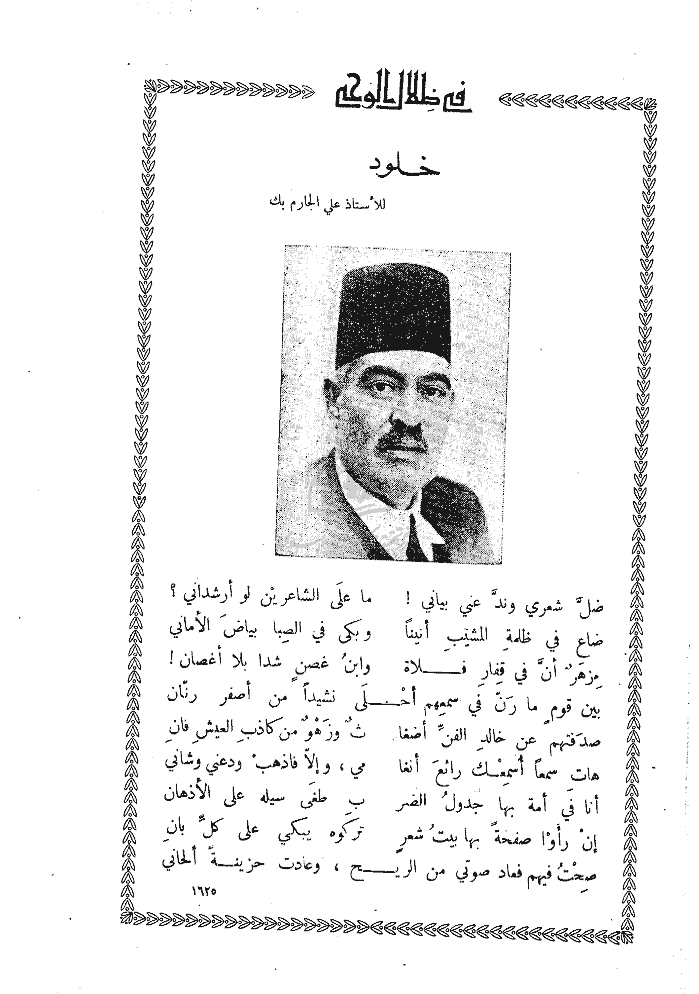 في ظلال الوحي
خلود
للأستاذ علي الجارم بك
ضلَّ شعري وندَّ عني بياني ! ما علَى الشاعريْن لو أرشداني ؟
ضاع في ظلمةِ المشيبِ أنيناً وبكى في الصِبا بياضَ الأماني
مِزهَرٌ أنَّ في قِفارِ فـلاة وابنُ غصنٍ شدا بلا أغصان !
بين قومٍ ما رَنَّ في سمعِهم أحْـلَى نشيداً من أصفر رنّان
صدَفتهم عن خالدِ الفنِّ أضغا ثٌ وزَهْوٌ من كاذبِ العيشِ فانِ
هات سمعاً أُسمِعْـك رائعَ أنغا مي ، وإلاّ فاذهبْ ودعني وشاني
أنا في أمة بها جدولُ الضر بِ طغَى سيله على الأذهان
إنْ رأوْا صفحةً بها بيتُ شعرٍ تركوه يبكي على كلِّ بانِ
صِحْتُ فيهم فعاد صوتي من الريـح ، وعادت حزينةً ألحاني
١٦٢٥